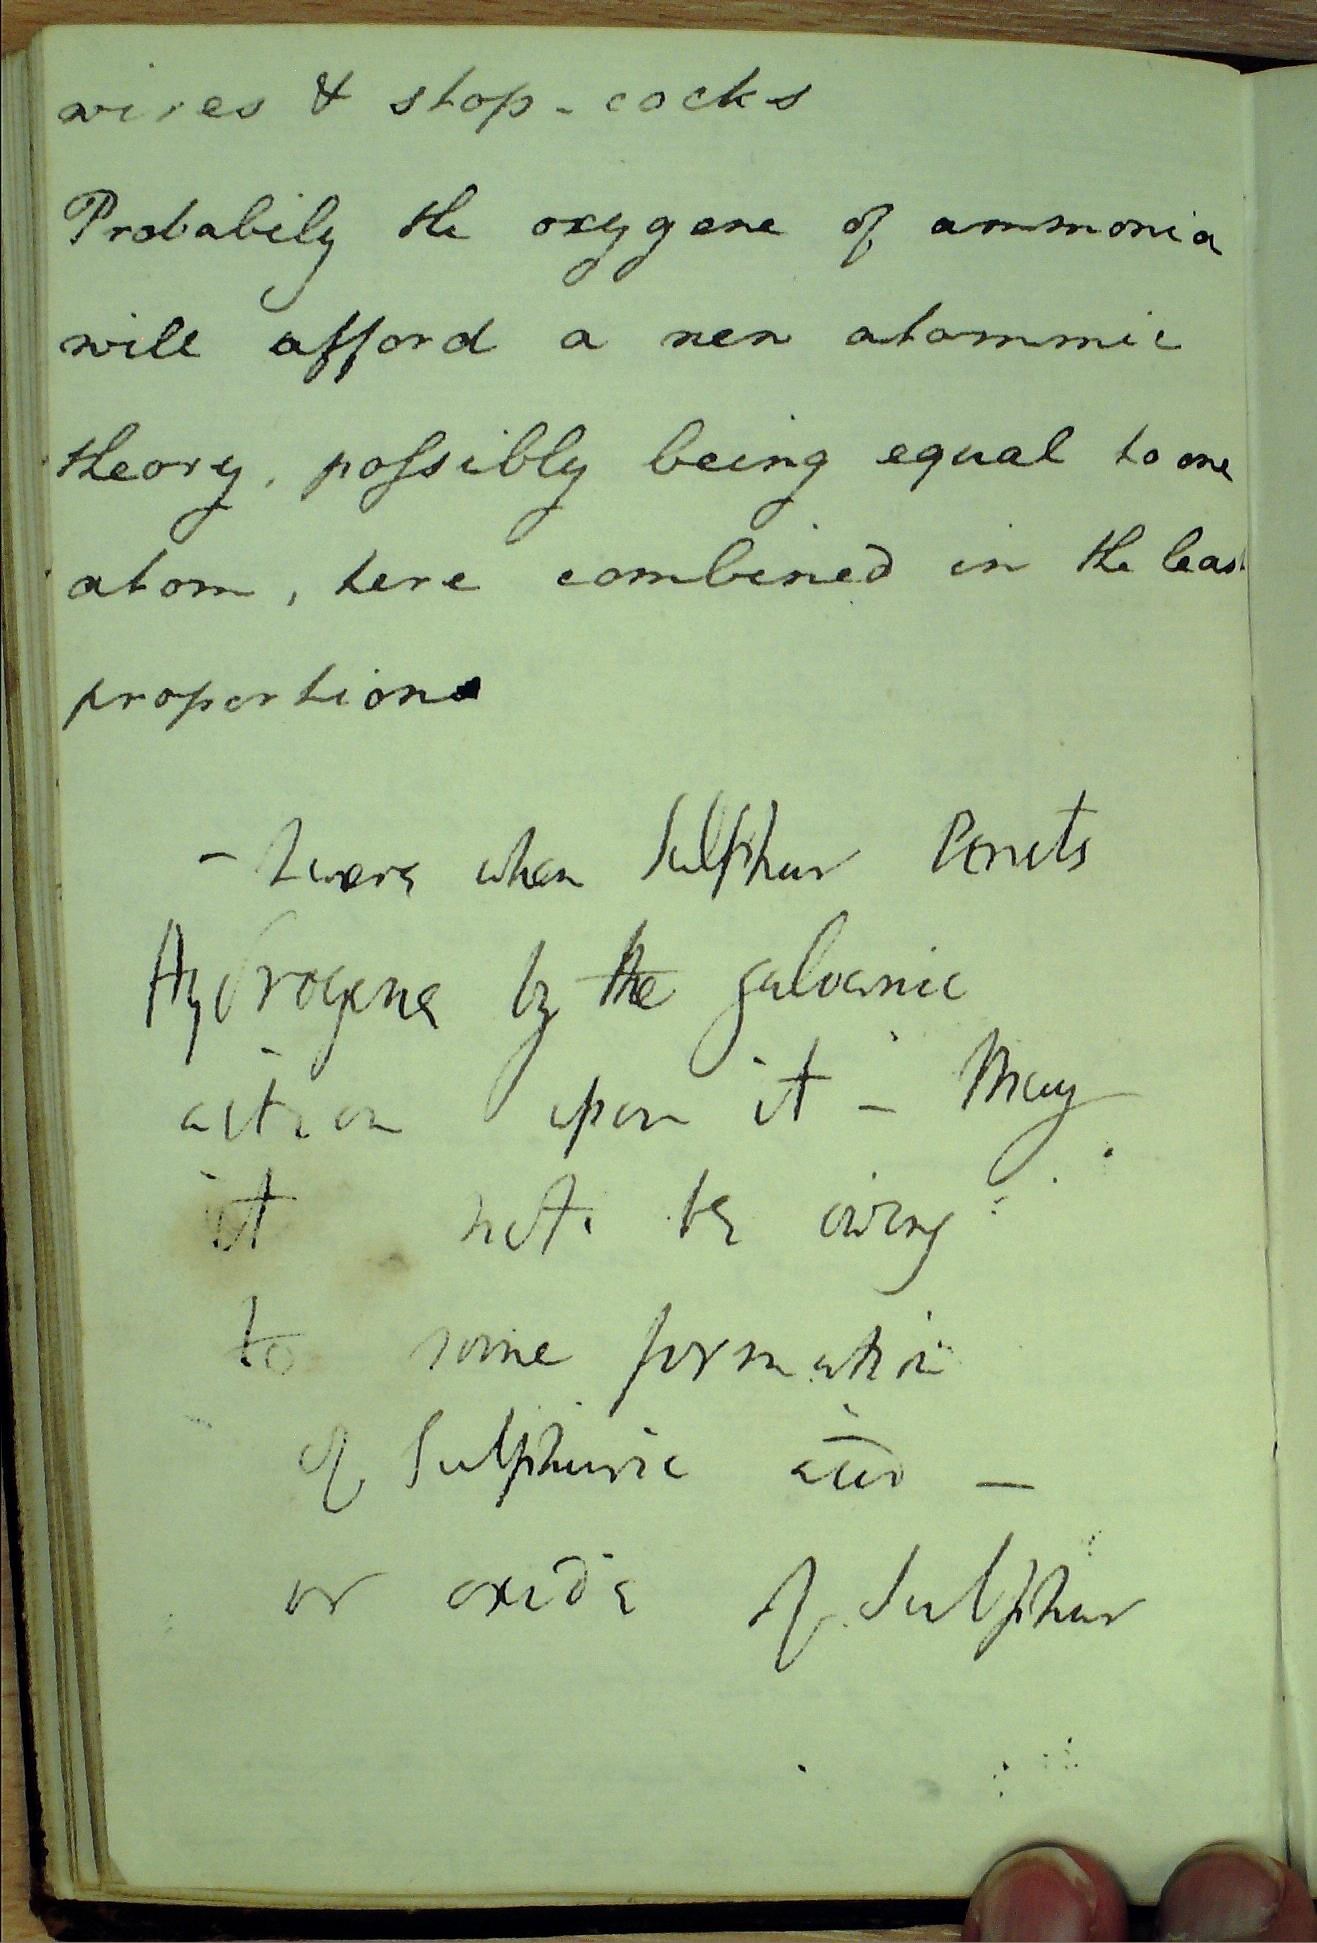 wires & stop-cocks
Probabily the oxygene of ammonia
will afford a new atommic
theory, possibly being equal to one
atom, here combined in the least
proportions
- when Sulphur
Hydrogene by the galvanic
action upon it - May
it not be owing
to some formation
of Sulphuric acid -
or oxide of Sulphur